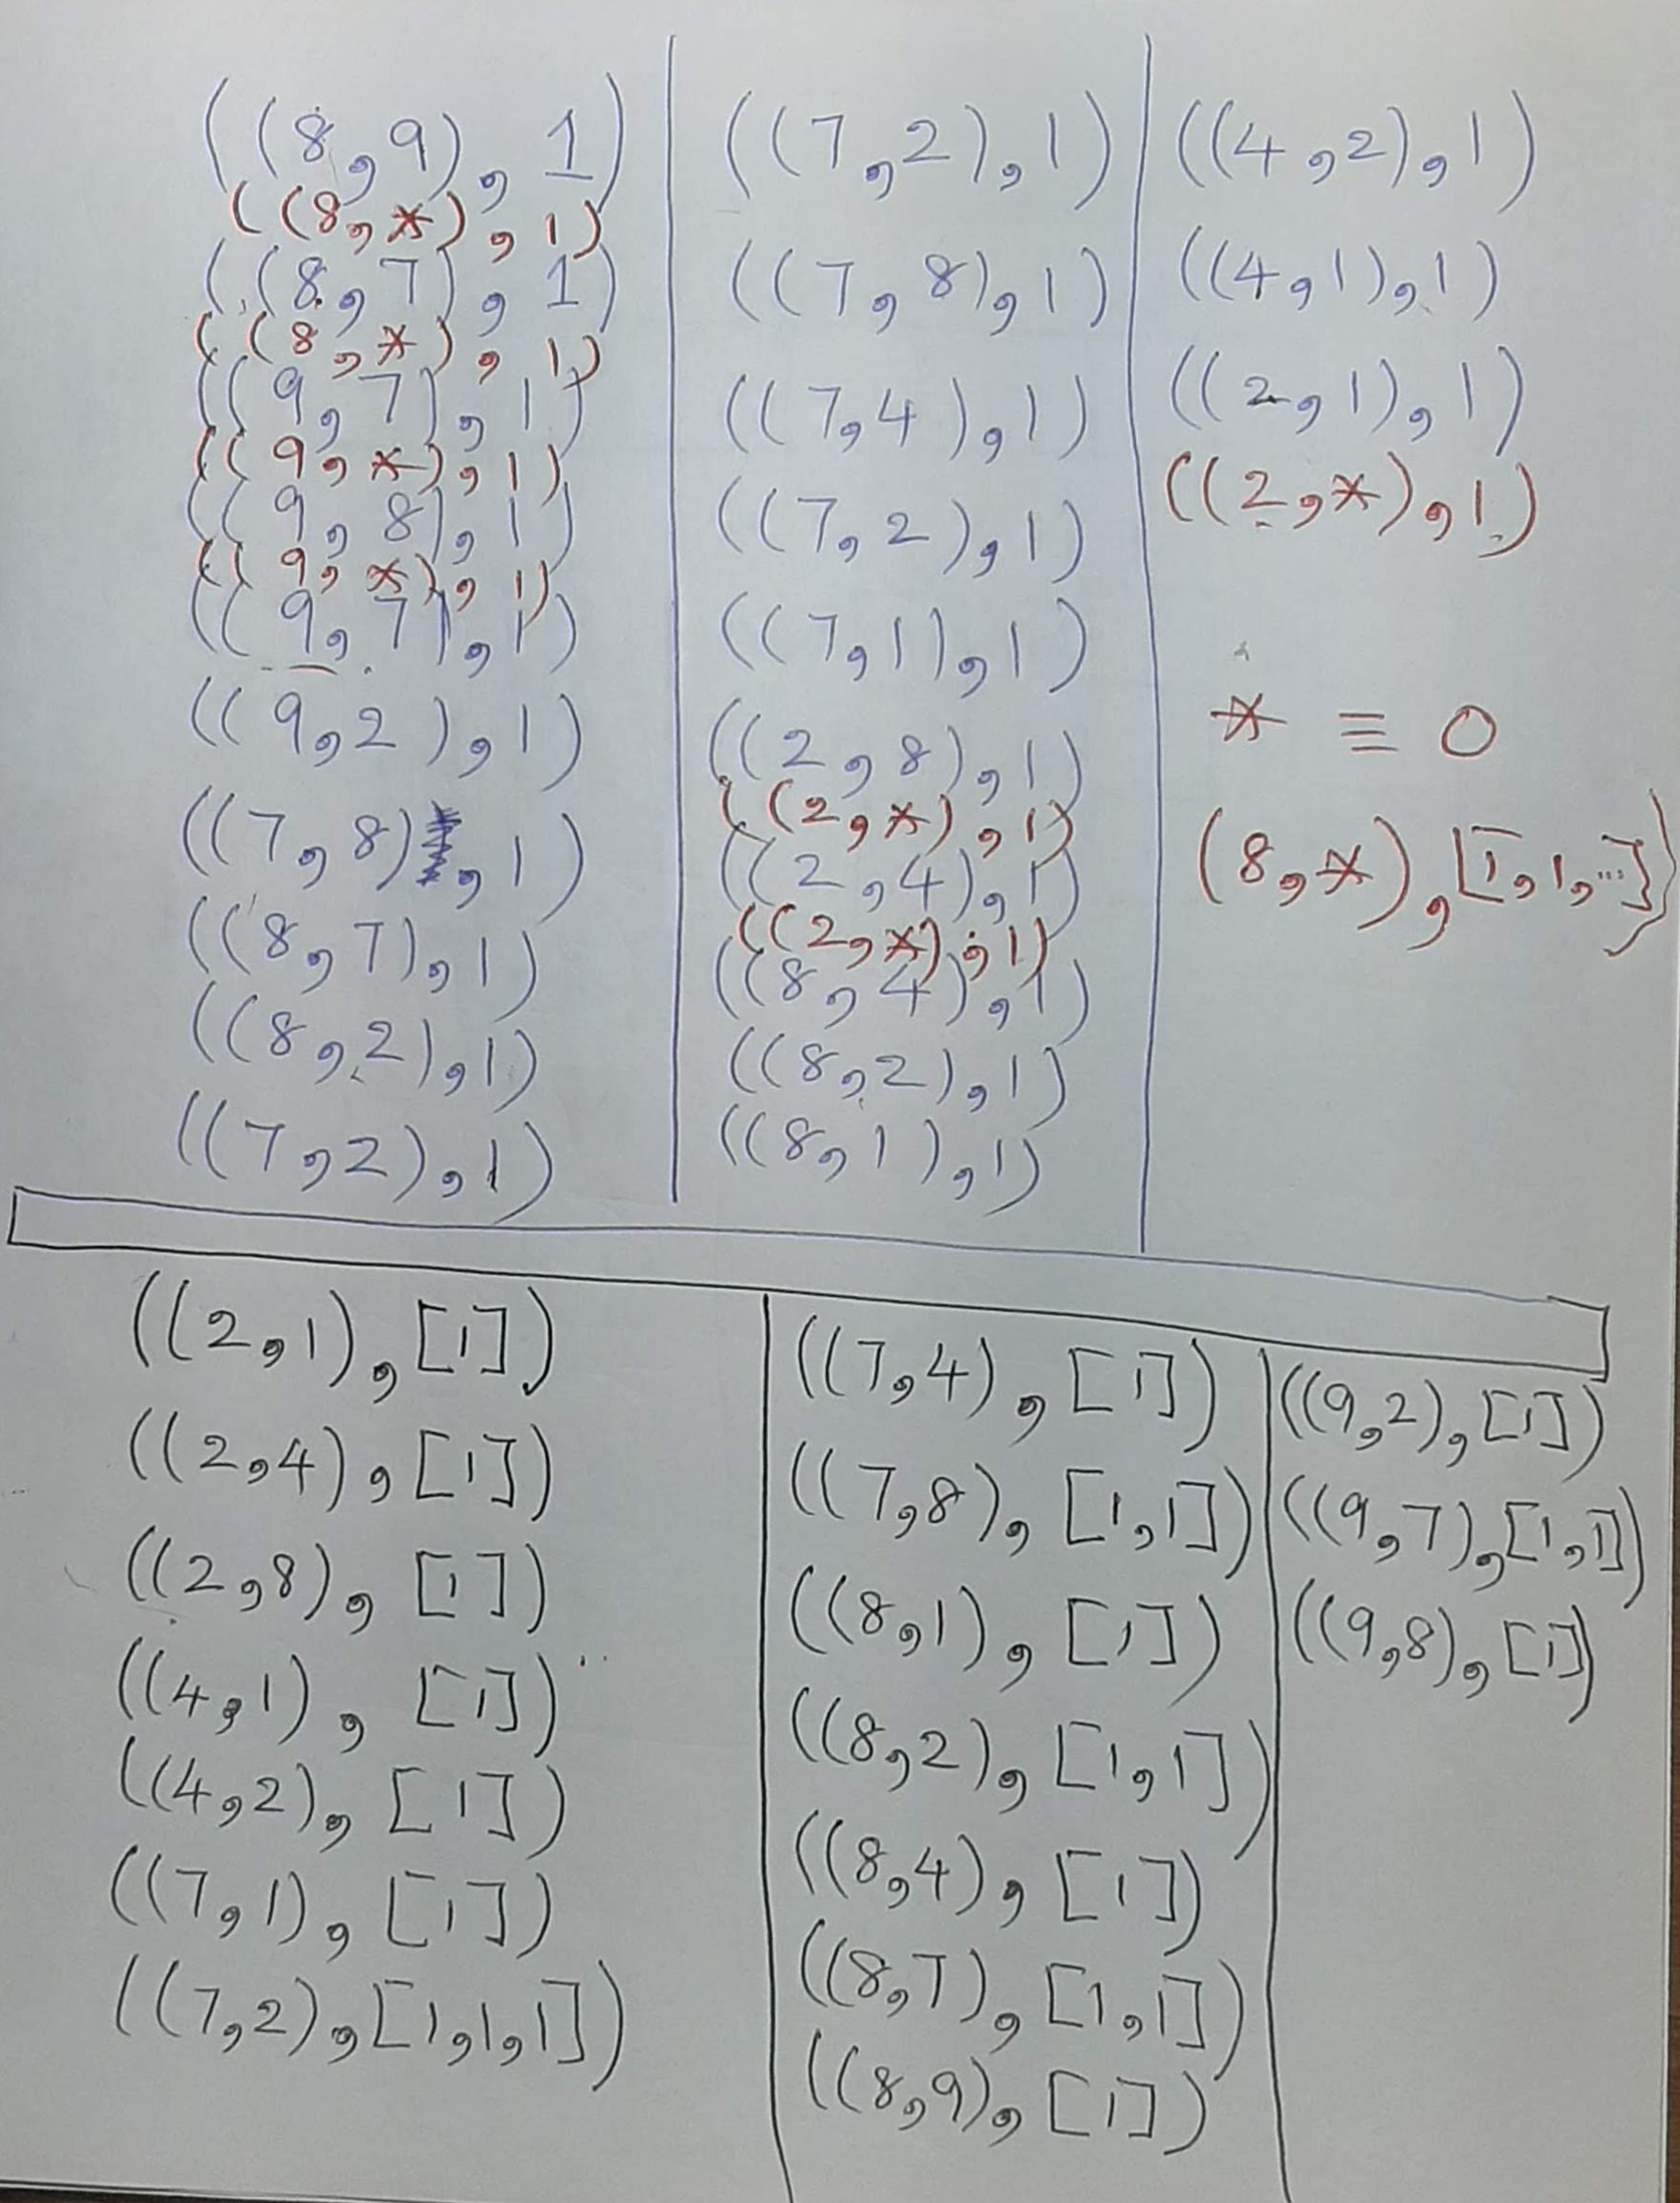 ((8,9), 1)
((8,*), 1)
((8,7), 1)
((8,*), 1)
((9,7), 1)
((9,*), 1)
((9,8), 1)
((9,*), 1)
((9,7), 1)
((9,2), 1)
((7,8), 1)
((8,7), 1)
((8,2), 1)
((7,2), 1)
((7,2), 1)
((7,8), 1)
((7,4), 1)
((7,2), 1)
((7,1), 1)
((2,8), 1)
((2,*), 1)
((2,4), 1)
((2,*), 1)
((8,4), 1)
((8,2), 1)
((8,1), 1)
((4,2), 1)
((4,1), 1)
((2,1), 1)
((2,*), 1)
* ≡ 0
(8,*), [1,1,...]}
((2,1), [1])
((2,4), [1])
((2,8), [1])
((4,1), [1])
((4,2), [1])
((7,1), [1])
((7,2), [1,1,1])
((7,4), [1])
((7,8), [1,1])
((8,1), [1])
((8,2), [1,1])
((8,4), [1])
((8,7), [1,1])
((8,9), [1])
((9,2), [1])
((9,7), [1,1])
((9,8), [1])